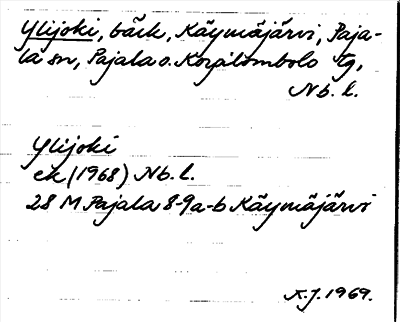 Ylijoki, bäck, Käymäjärvi, Paja-
la sn, Pajala o. Korpilombolo tg,
Nb. l.
Ylijoki
ek (1968) Nb. l.
28 M Pajala 8-9a-b Käymäjärvi
K.J. 1969.